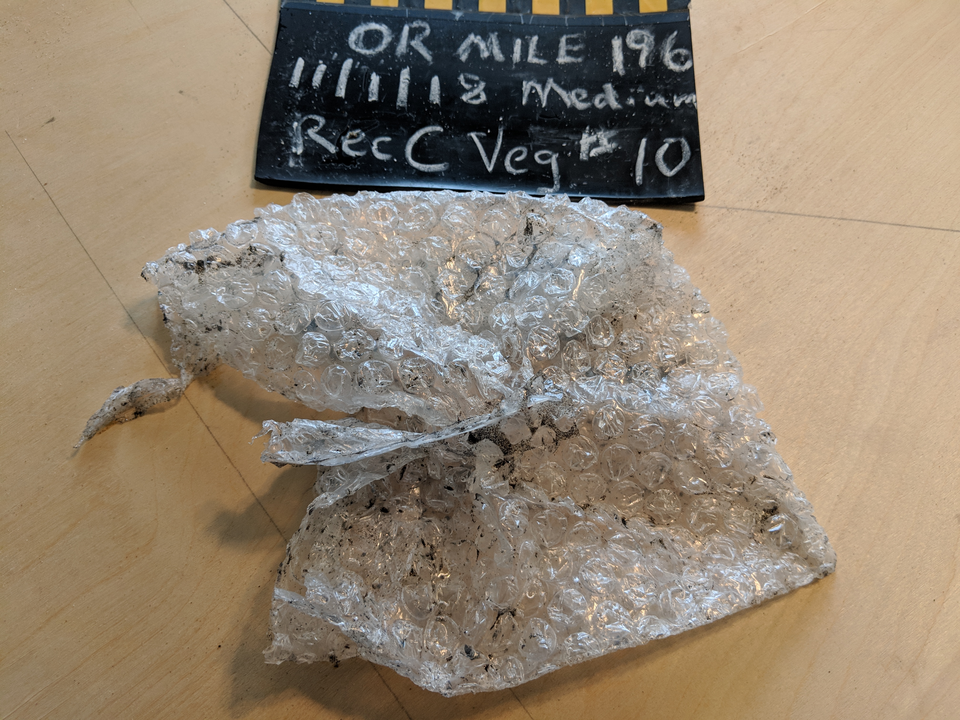 OR MILE 196
11/11/18 Medium
Rec C Veg # 10